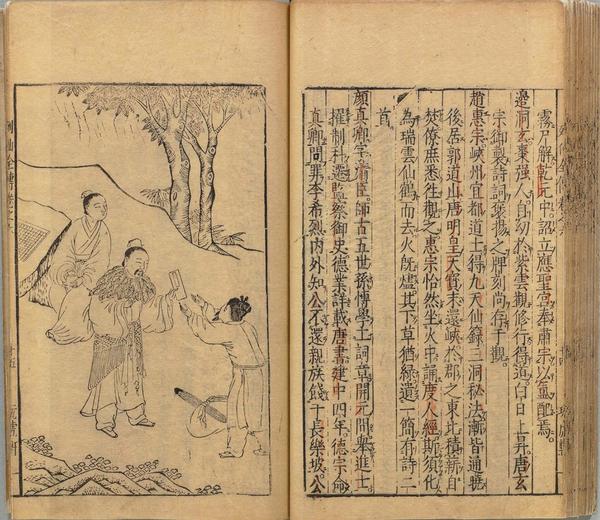 霧尸解乾元中詔立應聖宮奉肅宗以
配焉
邊洞玄棗強人自幼於紫雲觀修行得道白日上昇唐玄
宗御製詩詞褒揚之牌刻尚存于觀
趙惠宗峽州宜都道士得九天仙籙三洞秘法漸皆通曉
後居郭道山唐明皇天寶末還峽於郡之東北積薪自
焚僚庶悉往觀之惠宗怡然坐火中誦度人經斯須化
為瑞雲仙鶴而去火既燼其下草猶綠遺一簡有詩二
首
顏真卿字清臣師古五世孫博學工詞章開元間舉進士
擢制科遷監察御史德業詳載唐書建中四年德宗命
真卿問罪李希烈內外知公不還親族餞于長樂坡公
列仙全傳卷之六